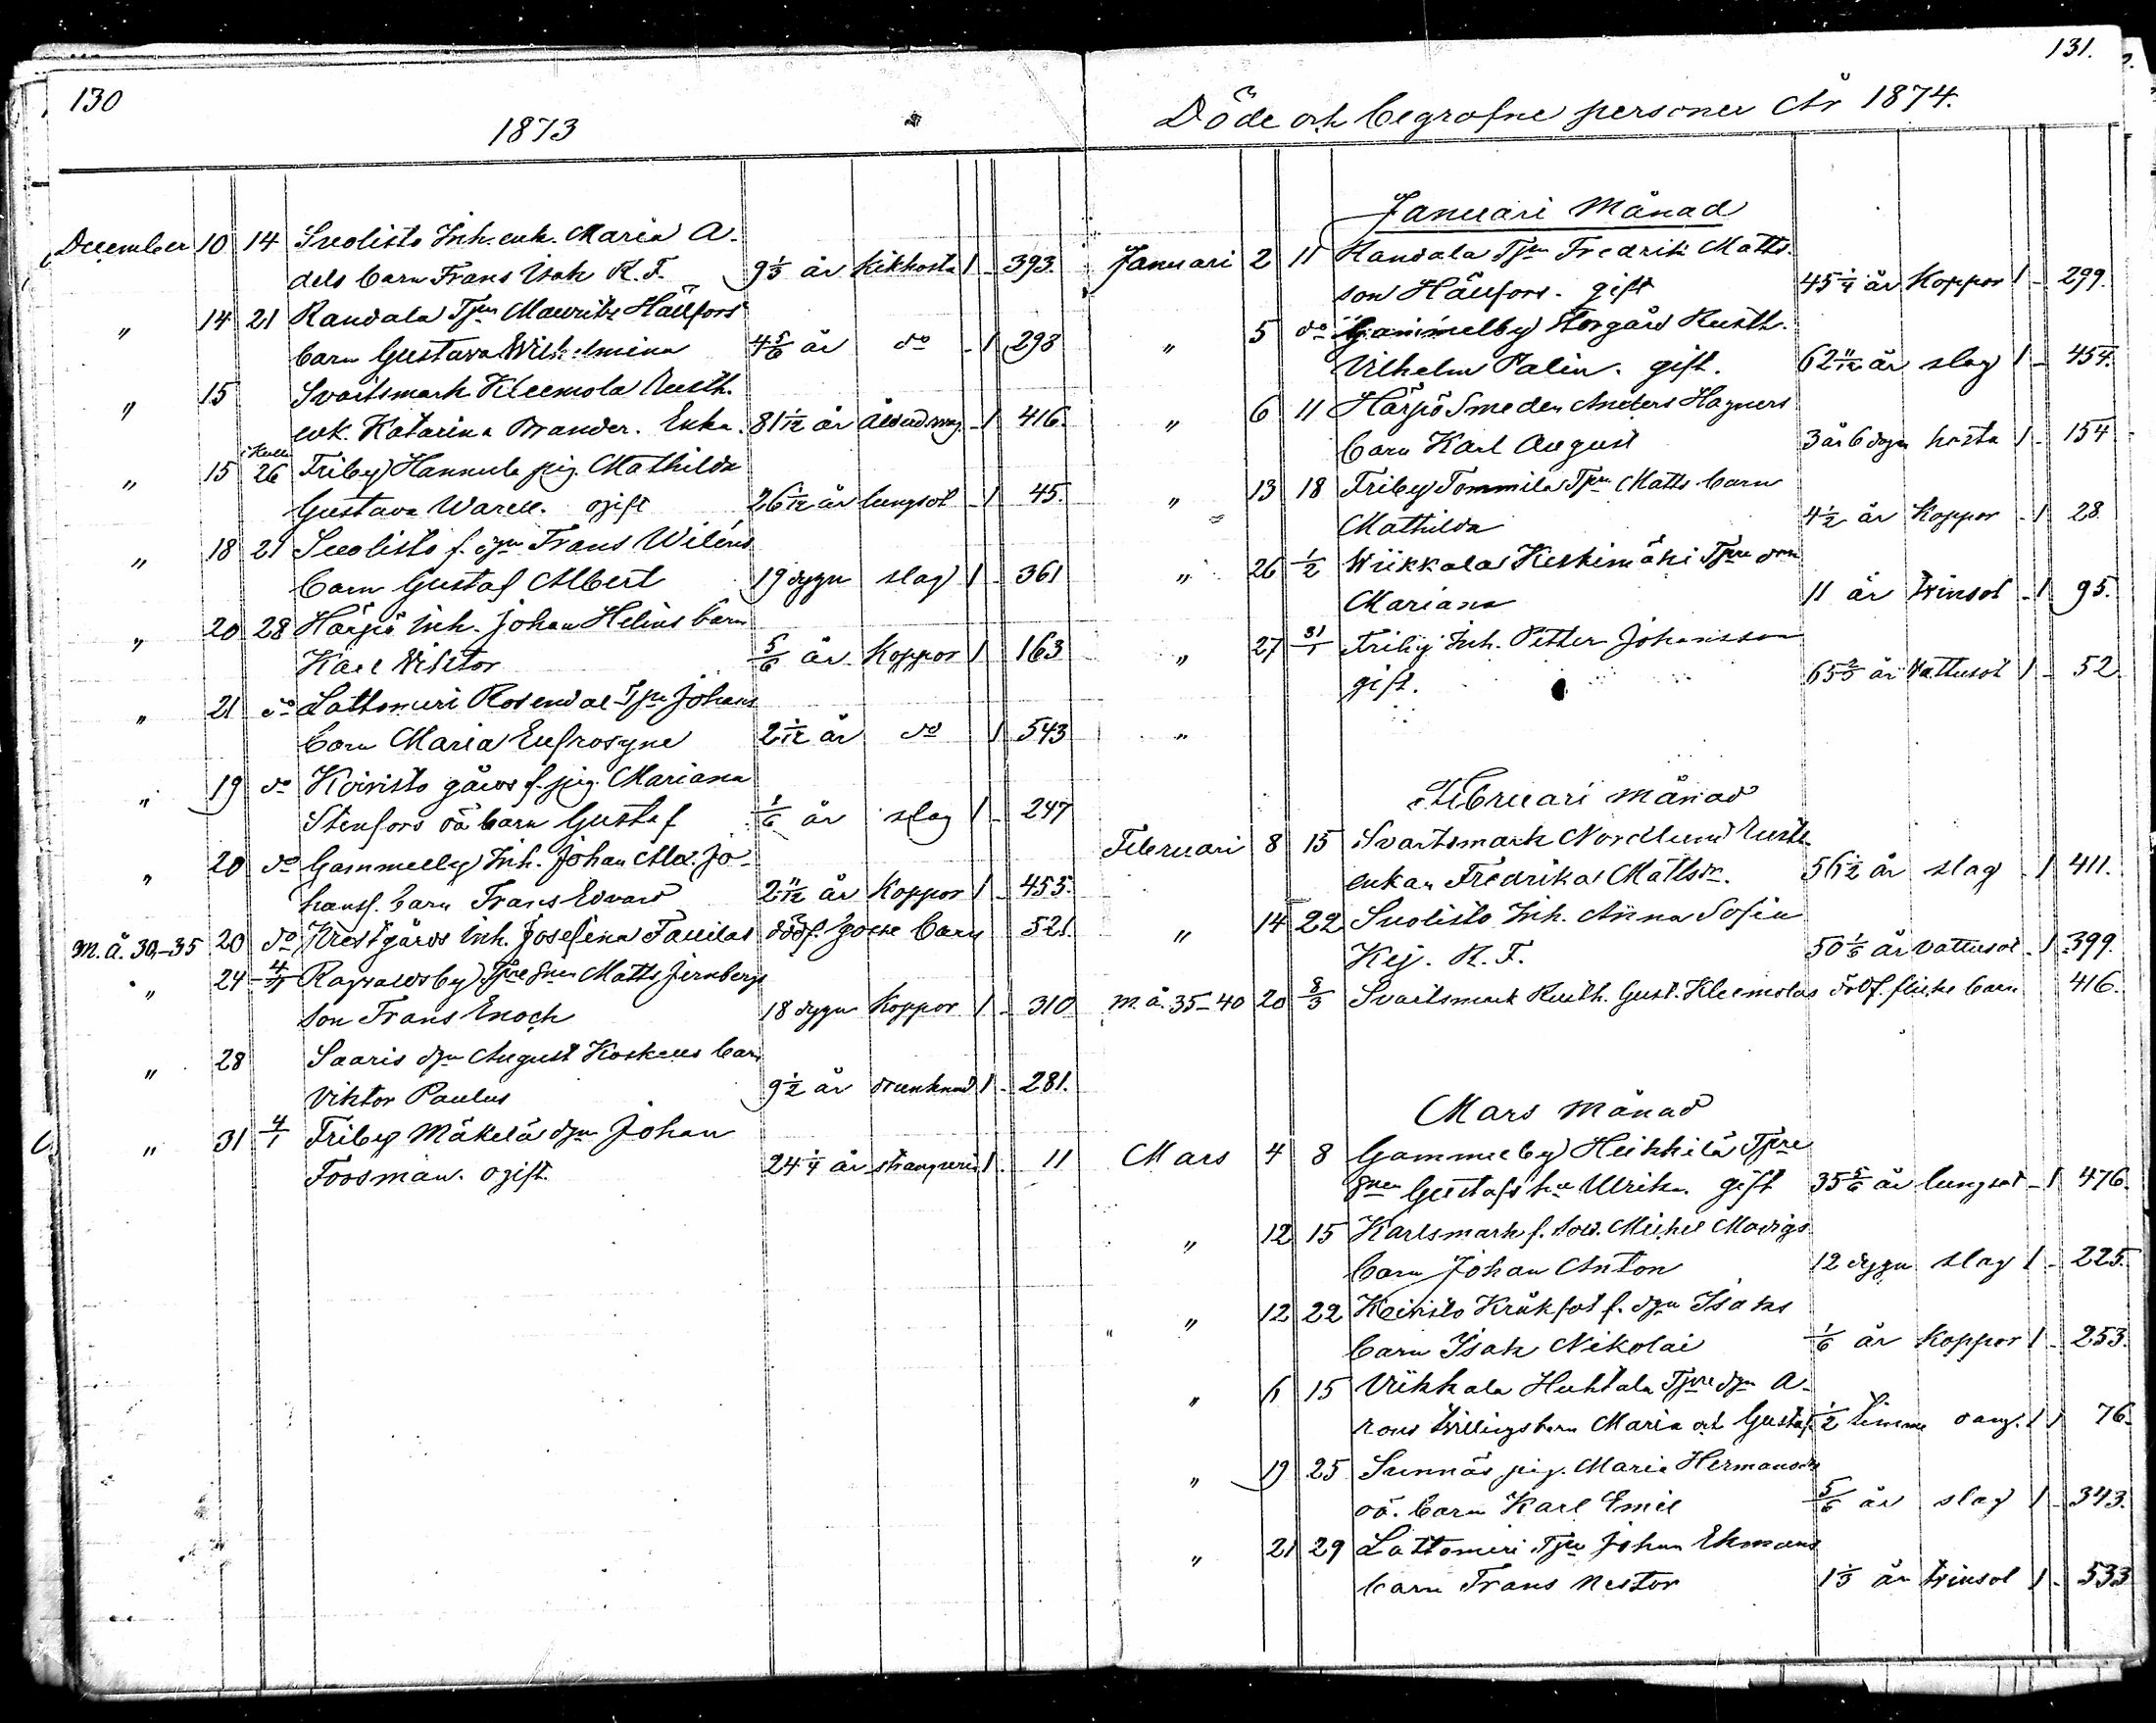 130
1873
December 10 14 Suolisto Inh. enk. Maria A-
dels barn Frans Isak R. F. 9 1/3 år Kikhosta 1 - 393.
" 14 21 Randala Tjn Mauritz Hällfors
barn Gustava Wilhelmina 4 5/6 år do - 1 298
" 15 Svartsmark Kleemola Rusth.
enk. Katarina Brander. Enka. 81 1/12 år - 1 416.
" 15 26 Friby Hannula pig. Mathilda
Gustava Warell. ogift 26 1/12 år lungsot - 1 45.
" 18 21 Suolisto f. dgn Frans Wiléns
barn Gustaf Albert 19 dygn slag 1 - 361
" 20 28 Härpö Inh. Johan Helins barn
Karl Viktor 5/6 år Koppor 1 163
" 21 do Lattomeri Rosendal Tjn Johans
barn Maria Eufrosyne 2 1/12 år do 1 543
" 19 do Koivisto gårds f. pig. Mariana
Stenfors oä barn Gustaf 1/6 år slag 1 - 247
" 20 do Gammelby Inh. Johan Alex. Jo-
hanss. barn Frans Edvard 2 11/12 år Koppor 1 - 455.
M. å. 30-35 20 do Krestgårds Inh. Josefina Tauilas dödf. gosse barn 521.
" 24 4/1 Ragvaldsby Tjre dgn Matts Jernbergs
son Frans Enoch 18 dygn Koppor 1 - 310
" 28 Saaris dgn August Koskens barn
Viktor Paulus 9 1/2 år drunknad 1 - 281.
" 31 4/1 Friby Mäkelä dgn Johan
Forsman. ogift. 24 1/4 år 1 11
131.
Döde och begrafne personer År 1874.
Januari Månad
Januari 2 11 Randala Tjn Fredrik Matts-
son Hällfors. gift 45 1/4 år Koppor 1 - 299.
" 5 do Gammelby Storgård Rusth.
Vilhelm Palin. gift. 62 11/12 år slag 1 - 454.
" 6 11 Härpö Smeden Anders Hagners
barn Karl August 3 år 6 dygn hosta 1 - 154
" 13 18 Friby Tommila Tjn Matts barn
Mathilda 4 1/2 år Koppor - 1 28.
" 26 1/2 Wiikkala Keskimäki Tjre
Mariana 11 år tvinsot - 1 95.
" 27 31/1 Friby Inh. Petter Johansson
gift. 65 2/3 år Vattusot 1 - 52.
"
Februari månad
Februari 8 15 Svartsmark Nordlund Rusth.
enkan Fredrika Mattsdr. 56 1/2 år slag - 1 411.
" 14 22 Suolisto Inh. Anna Sofia
Kej. R. F. 50 1/6 år vattusot - 1 399.
M. å. 35-40 20 8/3 Svartsmark Rusth. Gust. Kleemolas dödf. flicke barn 416.
Mars månad
Mars 4 8 Gammelby Heikkilä Tjre
dgn Gustafs hu Ulrika. gift 35 5/6 år lungsot - 1 476.
" 12 15 Karlsmark f. sold. Michel Modigs
barn Johan Anton 12 dygn slag 1 - 225.
" 12 22 Koivisto Kråkfot f. dgn Isaks
barn Isak Nikolai 1/6 år Koppor 1 - 253.
" 6 15 Viikkala Huhtala Tjre dgn A-
rons tvillingsbarn Maria och Gustaf. 1/2 timme oang. 1 1 76.
" 19 25 Sunnäs pig. Maria Hermansdr
oä. barn Karl Emil 5/6 år slag 1 - 343.
" 21 29 Lattomeri Tjn Johan Ekmans
barn Frans Nestor 1 1/3 år tvinsot 1 - 533